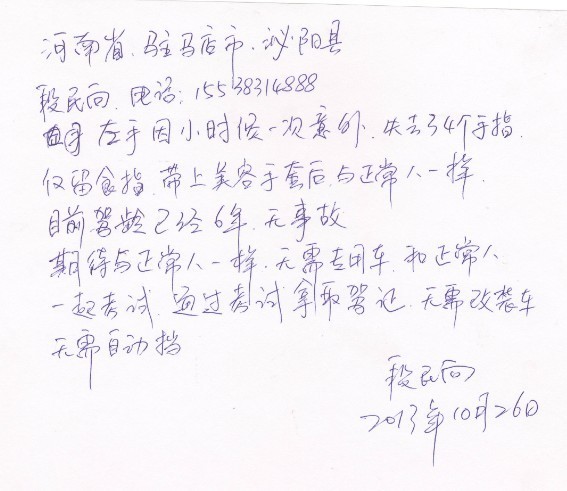 河南省.驻马店市.泌阳县
段民向.电话:15538314888
左手因小时候一次意外.失去了4个手指.
仅留食指.带上美容手套后.与正常人一样.
目前驾龄已经6年.无事故
期待与正常人一样.无需专用车.和正常人
一起考试.通过考试拿取驾证.无需改装车
无需自动挡
段民向
2013年10月26日